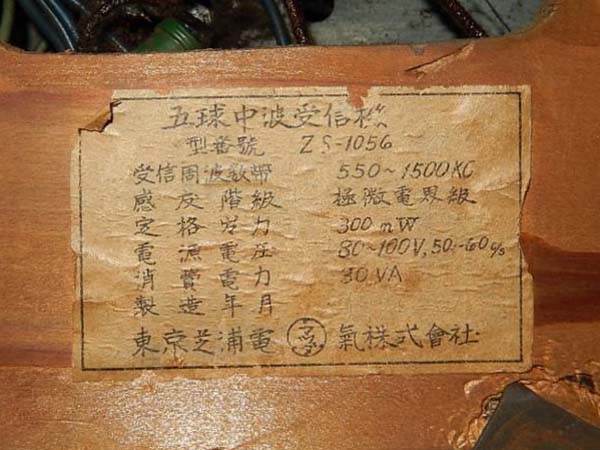 五球中波受信機
型番號 ZS-1056
受信周波数帶 550~1500KC
感度階級 極微電界級
定格出力 300mW
電源電圧 80~100V, 50~60c/s
消費電力 30VA
製造年月
東京芝浦電 マツダ 氣株式會社